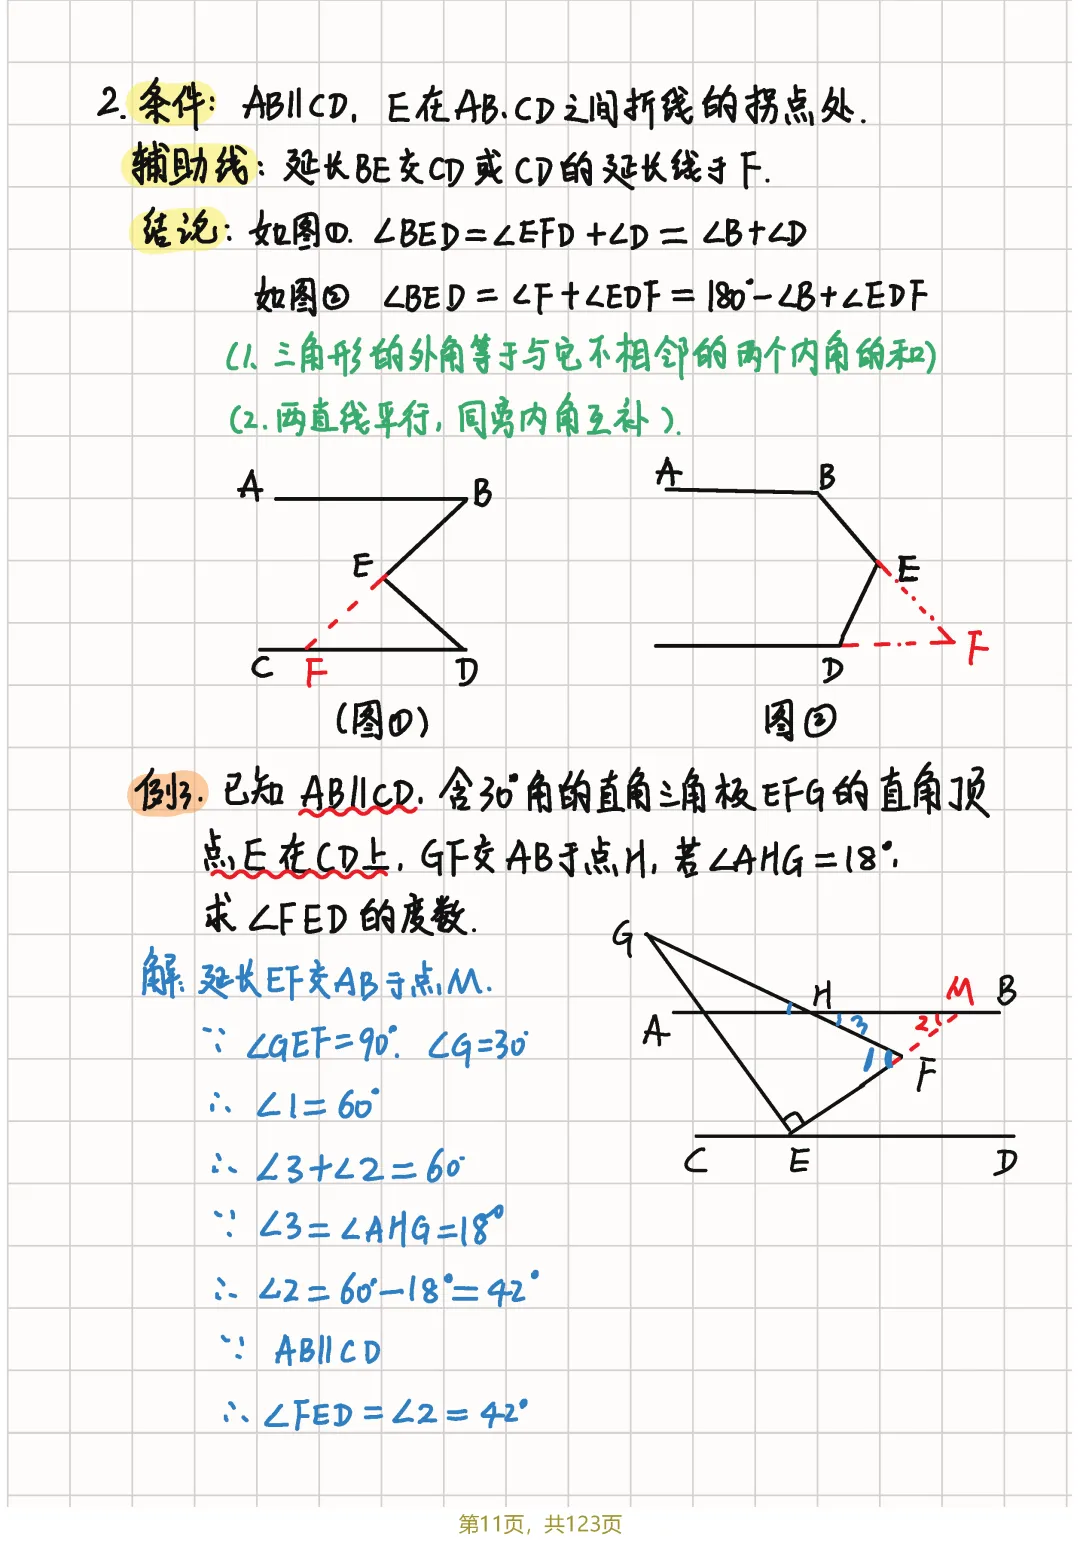 2. 条件: AB∥CD, E在AB、CD之间折线的拐点处.
辅助线: 延长BE交CD或CD的延长线于F.
结论: 如图①. ∠BED=∠EFD+∠D=∠B+∠D
如图② ∠BED=∠F+∠EDF=180°-∠B+∠EDF
(1. 三角形的外角等于与它不相邻的两个内角的和)
(2. 两直线平行, 同旁内角互补).
A B
E
C F D
(图①)
A B
E
D F
图②
例3. 已知 AB∥CD, 含30°角的直角三角板EFG的直角顶
点E在CD上, GF交AB于点H, 若∠AHG=18°,
求∠FED的度数.
解: 延长EF交AB于点M.
∵ ∠GEF=90°. ∠G=30°
∴ ∠1=60°
∴ ∠3+∠2=60°
∵ ∠3=∠AHG=18°
∴ ∠2=60°-18°=42°
∵ AB∥CD
∴ ∠FED=∠2=42°
G
A H M B
3 2
1 F
C E D
第11页，共123页